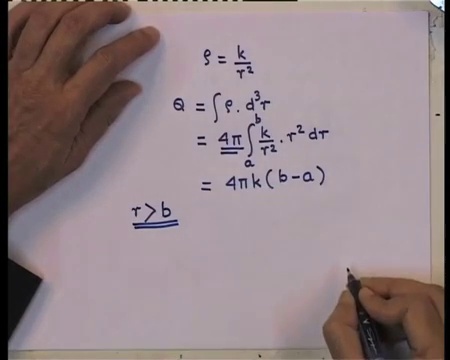 ρ = k/r²
Q = ∫ρ. d³r
= 4π ∫ₐᵇ k/r² . r² dr
= 4πk(b-a)
r>b